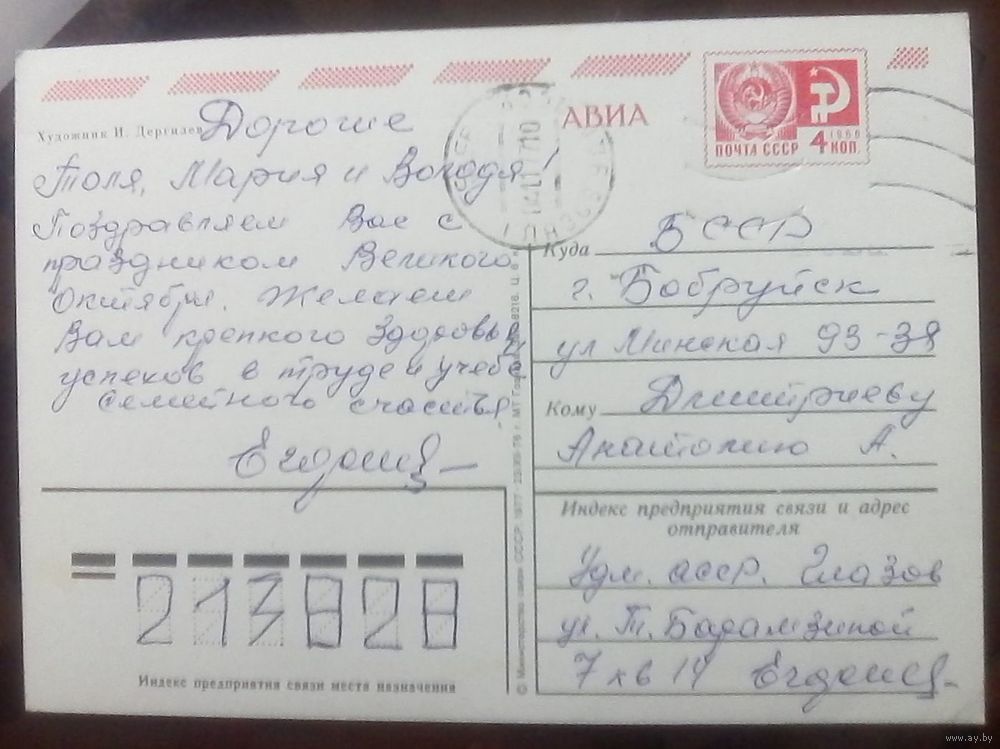 АВИА
ПОЧТА СССР 4 КОП.
1966
Художник И. Дергилев
Дорогие
Толя, Мария и Володя!
Поздравляем Вас с
праздником Великого
Октября. Желаем
Вам крепкого здоровья
успехов в труде и учебе
семейного счастья.
Куда БССР
г. Бобруйск
ул Минская 93-38
Кому Дмитриеву
Анатолию А.
Индекс предприятия связи и адрес
отправителя
Удм. АССР. Глазов
ул. Т. Барамзиной
7 кв 14
213828
Индекс предприятия связи места назначения
© Министерство связи СССР. 1977
www.ay.by